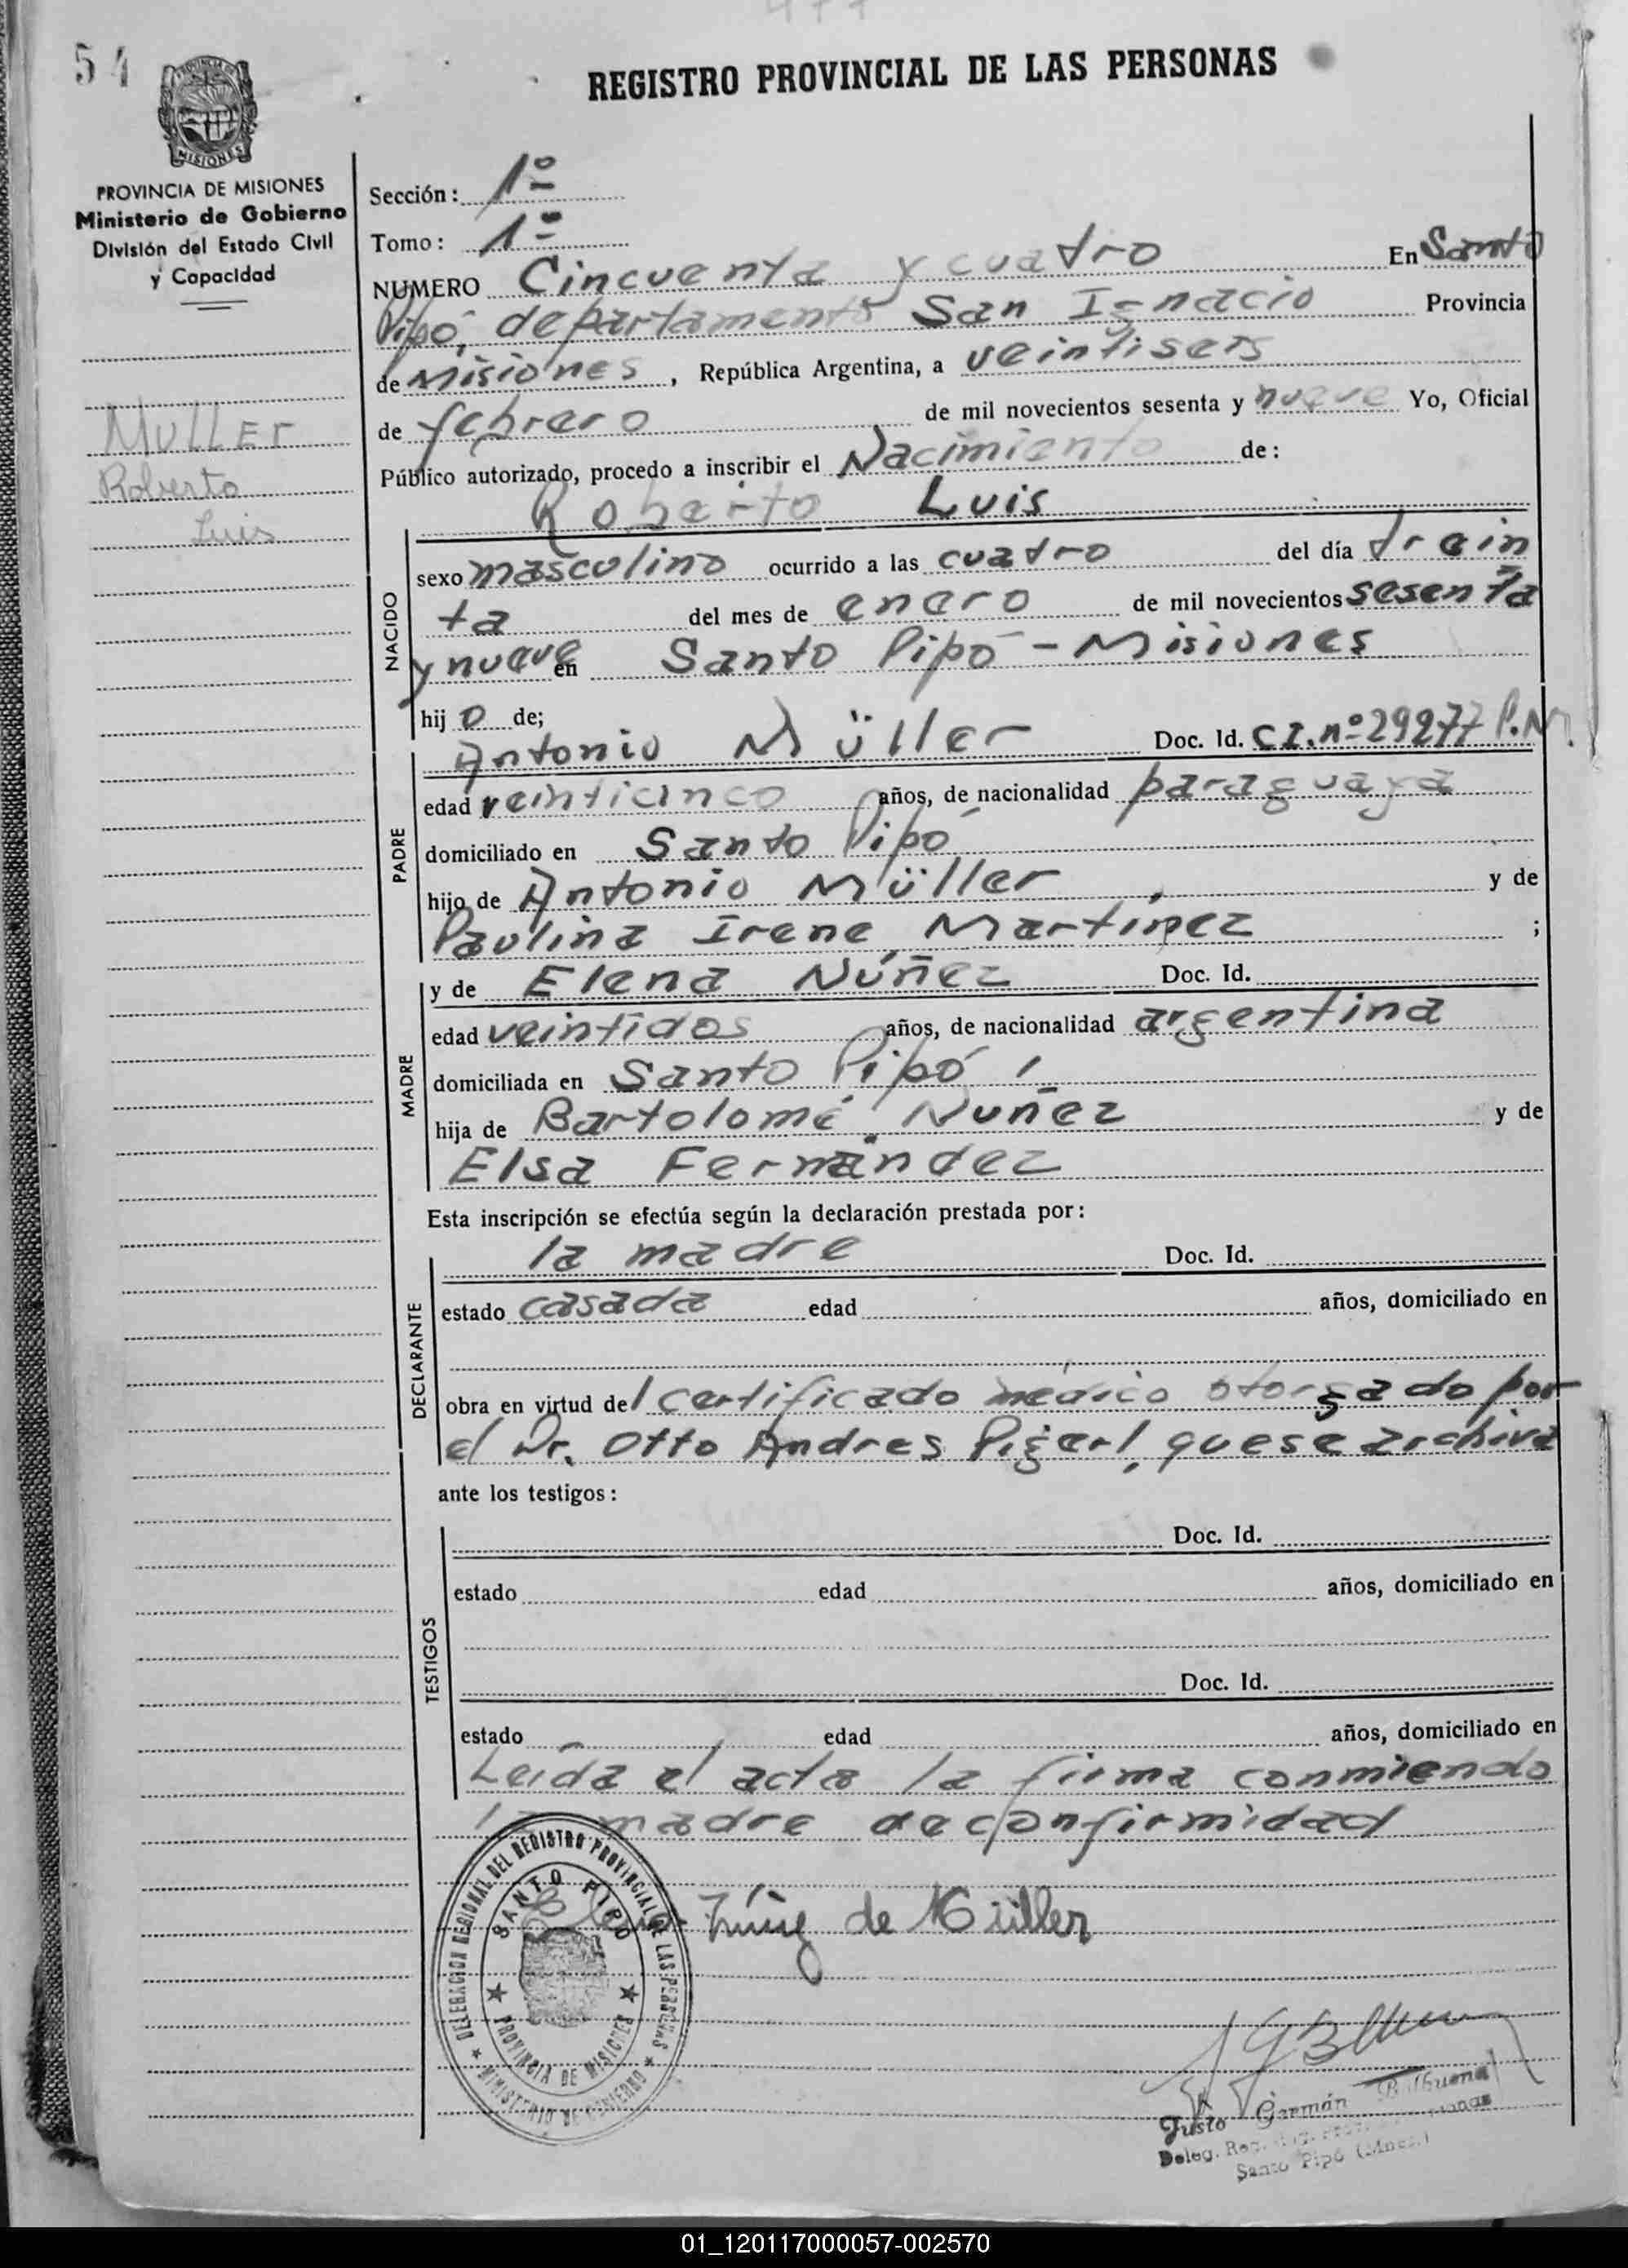 54
REGISTRO PROVINCIAL DE LAS PERSONAS
PROVINCIA DE MISIONES
Ministerio de Gobierno
División del Estado Civil
y Capacidad
MULLER
Roberto
Luis
Sección: 1º
Tomo: 1º
NUMERO Cincuenta y cuatro En Santo
Pipó, departamento San Ignacio Provincia
de Misiones, República Argentina, a veintiseis
de febrero de mil novecientos sesenta y nueve Yo, Oficial
Público autorizado, procedo a inscribir el Nacimiento de:
Roberto Luis
NACIDO
sexo masculino ocurrido a las cuatro del día trein
ta del mes de enero de mil novecientos sesenta
y nueve en Santo Pipó - Misiones
hijo de;
PADRE
Antonio Müller Doc. Id. C.I. nº 29277 P.M.
edad veinticinco años, de nacionalidad paraguaya
domiciliado en Santo Pipó
hijo de Antonio Müller y de
Paulina Irene Martinez ;
MADRE
y de Elena Núñez Doc. Id.
edad veintidos años, de nacionalidad argentina
domiciliada en Santo Pipó
hija de Bartolomé Nuñez y de
Elsa Fernández
Esta inscripción se efectúa según la declaración prestada por:
DECLARANTE
la madre Doc. Id.
estado casada edad años, domiciliado en
obra en virtud del certificado médico otorgado por
el Dr. Otto Andres Pigerl, que se archiva
ante los testigos:
TESTIGOS
Doc. Id.
estado edad años, domiciliado en
Doc. Id.
estado edad años, domiciliado en
Leída el acta la firma conmiendo
la madre de confirmidad
DELEGACION REGIONAL DEL REGISTRO PROVINCIAL DE LAS PERSONAS
SANTO PIPO
PROVINCIA DE MISIONES
MINISTERIO DE GOBIERNO
Elena Núñez de Müller
Justo Germán Balbuena
Deleg. Reg.
Santo Pipó (Mnes.)
01_120117000057-002570